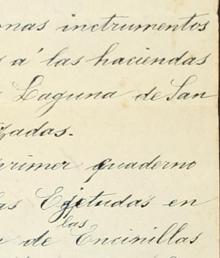 onas instrumentos
á las haciendas
Laguna de San
tadas.
primer quaderno
as Ejetudas en
las
de Encinillas